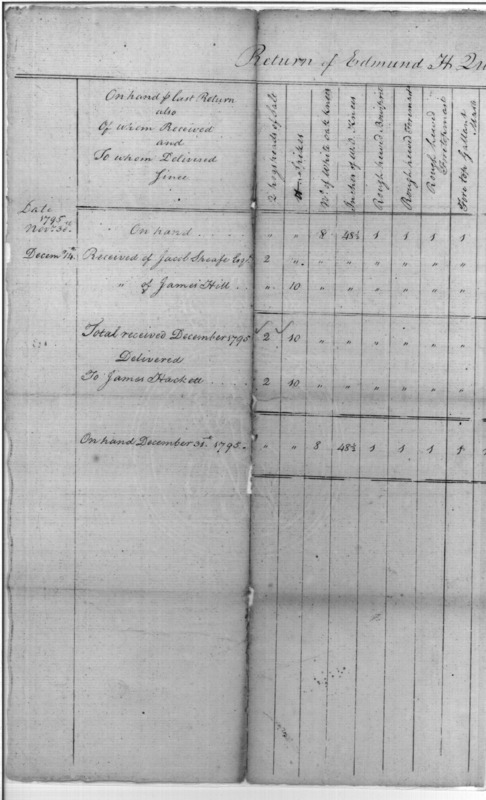 Return of Edmund H. Qu
On hand p last Return
also
Of whom Received
and
To whom Delivered
Since
2 hogsheads of Salt
Spikes
No. of White oak knees
Inches of said Knees
Rough hewed Bowsprit
Rough hewed Foremast
Rough hewed Foretopmast
Fore top Gallant Mast
Date
1795
Novr. 30. On hand . . . . " " 8 48½ 1 1 1 1
Decemr. 14. Received of Jacob Sheafe Esqr. 2 " " " " " " "
" of James Hill . . " 10 " " " " " "
Total received December 1795 2 10 " " " " " "
Delivered
To James Hackett . . . . 2 10 " " " " " "
On hand December 31st. 1795. " " 8 48½ 1 1 1 1